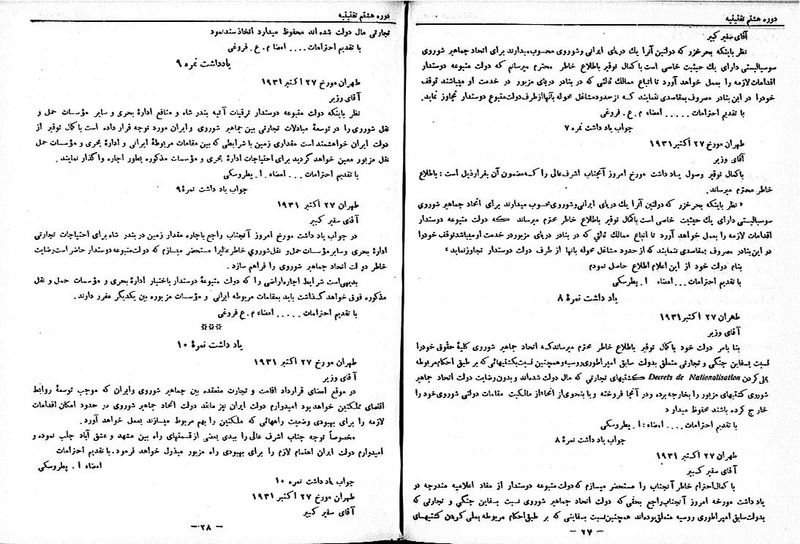 دوره هشتم تقنینیه
آقای سفیر کبیر
نظر باینکه بحر خزر که دولتین آنرا یك دریای ایرانی و شوروی محسوب میدارند برای اتحاد جماهیر شوروی
سوسیالیستی دارای یك حیثیت خاصی است با کمال توقیر باطلاع خاطر محترم میرسانم که دولت متبوعه دوستدار
اقدامات لازمه را بعمل خواهد آورد تا اتباع ممالك ثالثی که در بنادر دریای مزبور در خدمت او میباشند توقف
خود را در این بنادر مصروف بمقاصدی ننمایند که از حدود مشاغل محوله بآنها از طرف دولت متبوع دوستدار تجاوز نماید.
با تقدیم احترامات .... امضاء م . ع . فروغی
جواب یاد داشت نمره ۷
طهران مورخ ۲۷ اکتبر ۱۹۳۱
آقای وزیر
با کمال توقیر وصول یاد داشت مورخ امروز آنجناب اشرف عالی را که مضمون آن بقرار ذیل است : باطلاع
خاطر محترم میرساند.
« نظر باینکه بحر خزر که دولتین آنرا یك دریای ایرانی و شوروی محسوب میدارند برای اتحاد جماهیر شوروی
سوسیالیستی دارای یك حیثیت خاصی است با کمال توقیر باطلاع خاطر محترم میرساند که دولت متبوعه دوستدار
اقدامات لازمه را بعمل خواهد آورد تا اتباع ممالك ثالثی که در بنادر دریای مزبور در خدمت او میباشند توقف خود را
در این بنادر مصروف بمقاصدی ننمایند که از حدود مشاغل محوله بآنها از طرف دولت دوستدار تجاوز نماید »
بنام دولت خود از این اعلام اطلاع حاصل نمودم
با تقدیم احترامات... امضاء ا . پطرسکی
یاد داشت نمره ۸
طهران ۲۷ اکتبر ۱۹۳۱
آقای وزیر
بنا بامر دولت خود با کمال توقیر باطلاع خاطر محترم میرساند که اتحاد جماهیر شوروی کلیهٔ حقوق خود را
نسبت بسفاین جنگی و تجارتی متعلق بدولت سابق امپراطوری روسیه و همچنین نسبت بکشتیهائی که بر طبق احکام مربوطه
بملی کردن Decrets de Nationalisation کشتیهای تجارتی که مال دولت شده‌اند و بدون رضایت دولت اتحاد جماهیر
شوروی کشتیهای مزبور را بخارجه برده و در آنجا فروخته و یا بنحوی از انحاء از مالکیت مقامات دولتی شوروی خود را
خارج کرده باشند محفوظ میدارد
با تقدیم احترامات.... امضاء : ا . پطرسکی
جواب یاد داشت نمره ۸
طهران ۲۷ اکتبر ۱۹۳۱
آقای سفیر کبیر
با کمال احترام خاطر آنجناب را مستحضر میسازم که دولت متبوعه دوستدار از مفاد اعلامیه مندرجه در
یاد داشت مورخه امروز آنجناب راجع بحقی که دولت اتحاد جماهیر شوروی نسبت بسفاین جنگی و تجارتی که
بدولت سابق امپراطوری روسیه متعلق بوده‌اند همچنین نسبت بسفاینی که بر طبق احکام مربوطه بملی کردن کشتیهای
— ۲۷ —
دوره هشتم تقنینیه
تجارتی مال دولت شده اند محفوظ میدارد اتخاذ سند نمود
با تقدیم احترامات .... امضاء م . ع . فروغی
یادداشت نمره ۹
طهران مورخ ۲۷ اکتبر ۱۹۳۱
آقای وزیر
نظر باینکه دولت متبوعه دوستدار ترقیات آتیه بندر شاه و منافع ادارهٔ بحری و سایر مؤسسات حمل و
نقل شوروی را در توسعهٔ مبادلات تجارتی بین جماهیر شوروی و ایران مورد توجه قرار داده است با کمال توقیر از
دولت ایران خواهشمند است مقداری زمین با شرایطی که بین مقامات مربوطهٔ ایرانی و ادارهٔ بحری و مؤسسات حمل
نقل مزبور معین خواهد گردید برای احتیاجات ادارهٔ بحری و مؤسسات مذکوره بطور اجاره واگذار نمایند .
با تقدیم احترامات... امضاء ا . پطروسکی
جواب یاد داشت نمره ۹
طهران ۲۷ اکتبر ۱۹۳۱
آقای سفیر کبیر
در جواب یاد داشت مورخ امروز آنجناب راجع باجاره مقدار زمین در بندر شاه برای احتیاجات تجارتی
ادارهٔ بحری و سایر مؤسسات حمل و نقل شوروی خاطر عالی را مستحضر میسازم که دولت متبوعه دوستدار حاضر است رضایت
خاطر دولت اتحاد جماهیر شوروی را فراهم سازد .
بدیهی است شرایط اجاره اراضی را که دولت متبوعهٔ دوستدار باختیار ادارهٔ بحری و مؤسسات حمل و نقل
مذکوره فوق خواهد گذاشت باید بمقامات مربوطه ایرانی و مؤسسات مزبوره بین یکدیگر مقرر دارند .
با تقدیم احترامات ..... امضاء م . ع فروغی
***
یاد داشت نمرهٔ ۱۰
طهران مورخ ۲۷ اکتبر ۱۹۳۱
آقای وزیر
در موقع امضای قرارداد اقامت و تجارت منعقده بین جماهیر شوروی و ایران که موجب توسعهٔ روابط
اقتصادی مملکتین خواهد بود امیدوارم دولت ایران نیز مانند دولت اتحاد جماهیر شوروی در حدود امکان اقدامات
لازمه را برای بهبودی وضعیت راههائی که مملکتین را بهم مربوط میسازند بعمل خواهد آورد.
مخصوصاً توجه جناب اشرف عالی را ببدی بعضی از قسمتهای راه بین مشهد و عشق آباد جلب نموده و
امیدوارم دولت ایران اهتمام لازم را برای بهبودی راه مزبور مبذول خواهد فرمود. با تقدیم احترامات
امضاء ا . پطروسکی
جواب یاد داشت نمره ۱۰
طهران مورخ ۲۷ اکتبر ۱۹۳۱
آقای سفیر کبیر
— ۲۸ —